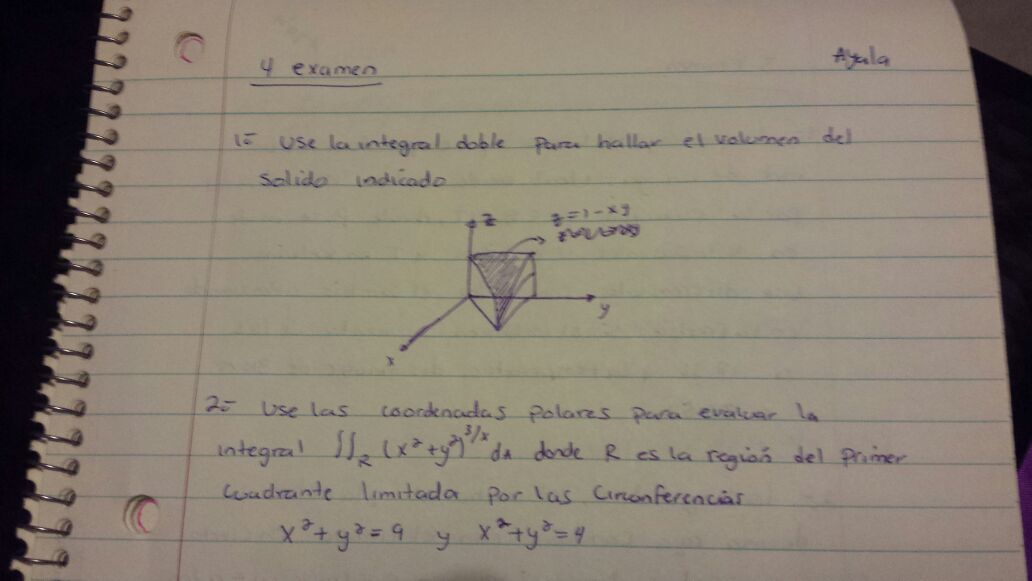 4 examen
Ayala
1= Use la integral doble para hallar el volumen del
solido indicado
z
z=1-xy
y
x
2= Use las coordenadas polares para evaluar la
integral ∬_R (x²+y²)^3/x dA donde R es la región del primer
cuadrante limitada por las circunferencias
x²+y²=9 y x²+y²=4